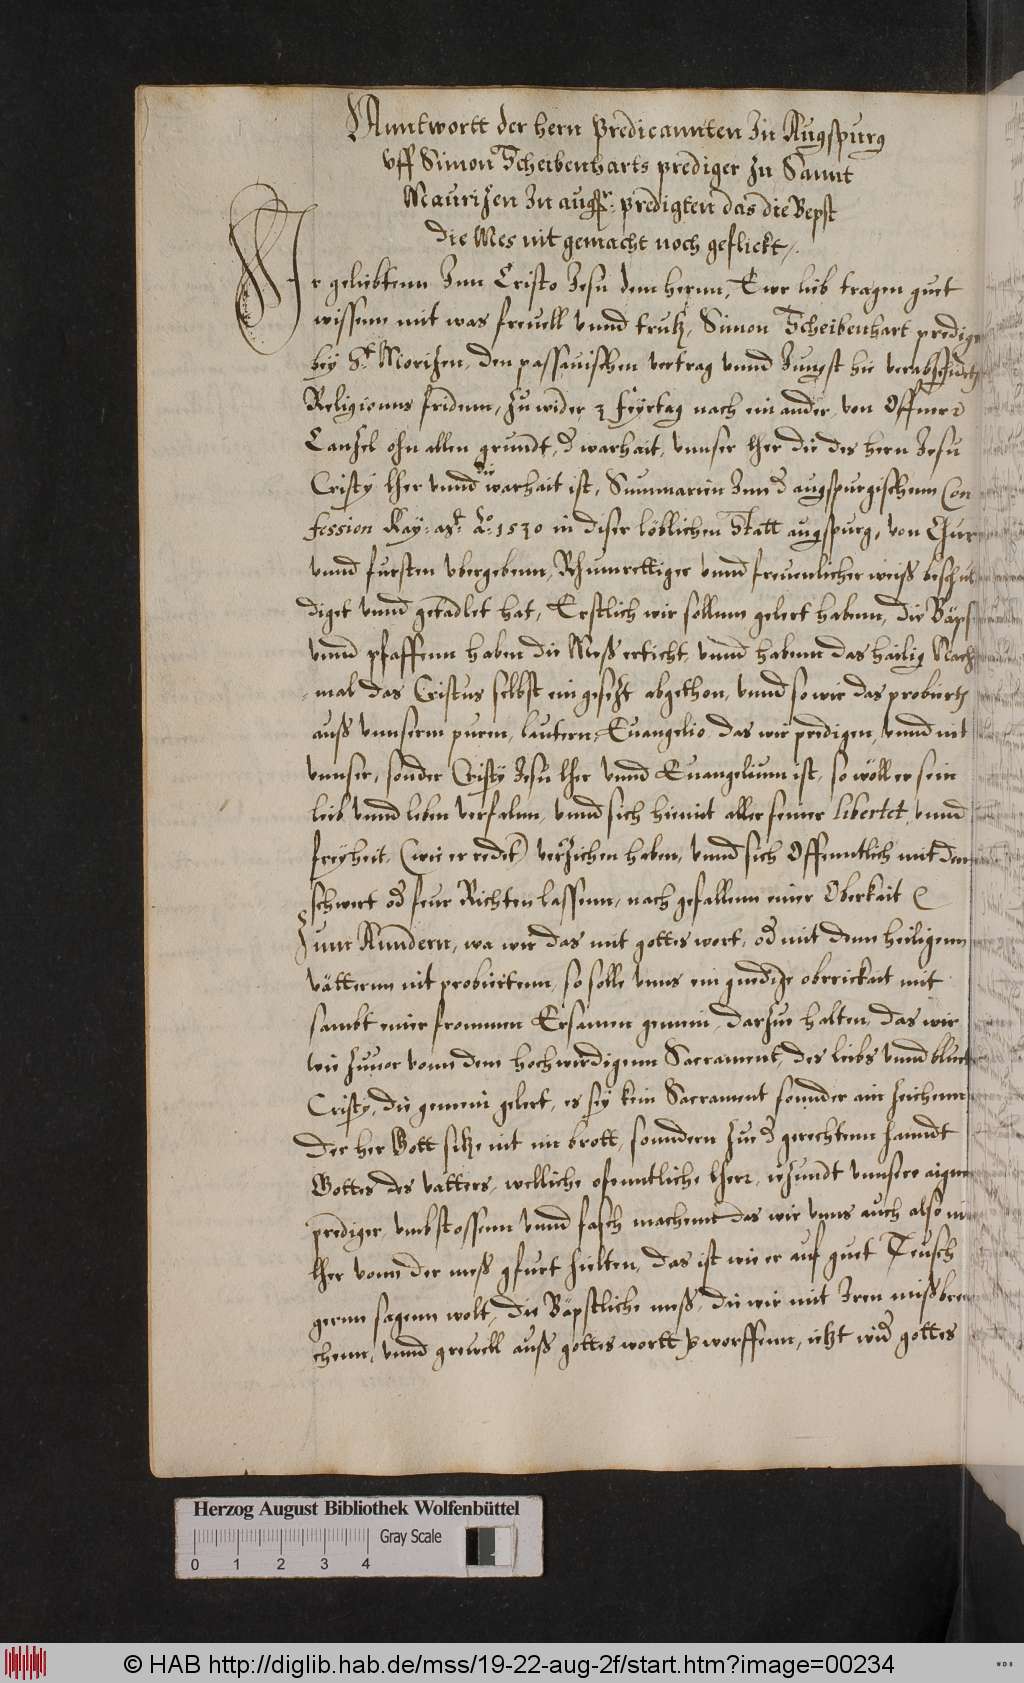 Anntwortt der hern Predicannten In Augspurg
Uff Simon Scheibenharts prediger zu Sannt
Maurizen In augsp: predigten das die Bepst
die Mes nit gemacht noch geflickt /.
Ir geliebtenn Inn Cristo Jesu dem hernn, Ewr lieb tragen guet
wissenn mit was freuell vnnd trutz, Simon Scheibenhart predig
bey St Morizen, den passauischen vertrag vnnd Jungst hie verabschidet
Religionns fridenn, zu wider 3 feyrtag nach ein ander, von Offner
Canzel ohn allen grundt, d warhait, vnnser lher die des hern Jesu
Cristy lher vnnd die warhait ist, Summarien Inn d augspurgischenn Con
fession Kay: Mt: Ao: 1530 in diser löblichen Statt augspurg, von Chur
vnnd fursten vbergebenn, Rhumrettiger vnnd freuenlicher weiß beschul
diget vnnd getadlet hat, Erstlich wir sollenn gelert habenn, die Bäps
vnnd pfaffenn haben die Meß erticht, vnnd habenn das hailig Nach
mal das Cristus selbst ein gesezt abgethon, vnnd so wir das probierth
auß vnnserm puren, lautern, Euangelio, das wir predigen, vnnd nit
vnnser, sonder Cristy Jesu lher vnnd Euangelium ist, so wöll er sein
leib vnnd leben verfalenn, vnnd sich hiemit aller seiner libertet, vnnd
freyheit, (wie er redet) verzichen haben, vnnd sich Offenntlich mit dem
schwert od feur Richten lassenn, nach gefallenn einer Oberkait
Zum Anndern, wa wir das mit gottes wort, od mit denn heiligenn
vätternn nit probiertenn, so solle vnns ein gnedize oberrickait mit
sambt einer frommen Ersamen gemein, darzue halten, das wir
wie zuuor vonn dem hochwirdigenn Sacrament, des leibs vnnd bluet
Cristy, die gemein gelert, es sey kein Sacrament sonnder ain zeichenn
Der her Gott sitze nit im brott, sonndern zue d gerechtenn hanndt
Gottes des vatters, welliche ofenntliche lherr, iezundt vnnsere aigne
prediger, vmbstossenn vnnd falsch machenn das wir vnns auch also in
lher vonn der meß gfurt hielten, das ist wie er auf guet Teusch
gernn sagenn wolt, Die Bäpstliche meß, die wir mit Iren mißbreu
chenn, vnnd grewell auß gottes wortt verworffenn, ietzt wid gottes
Herzog August Bibliothek Wolfenbüttel
Gray Scale
0 1 2 3 4
© HAB http://diglib.hab.de/mss/19-22-aug-2f/start.htm?image=00234